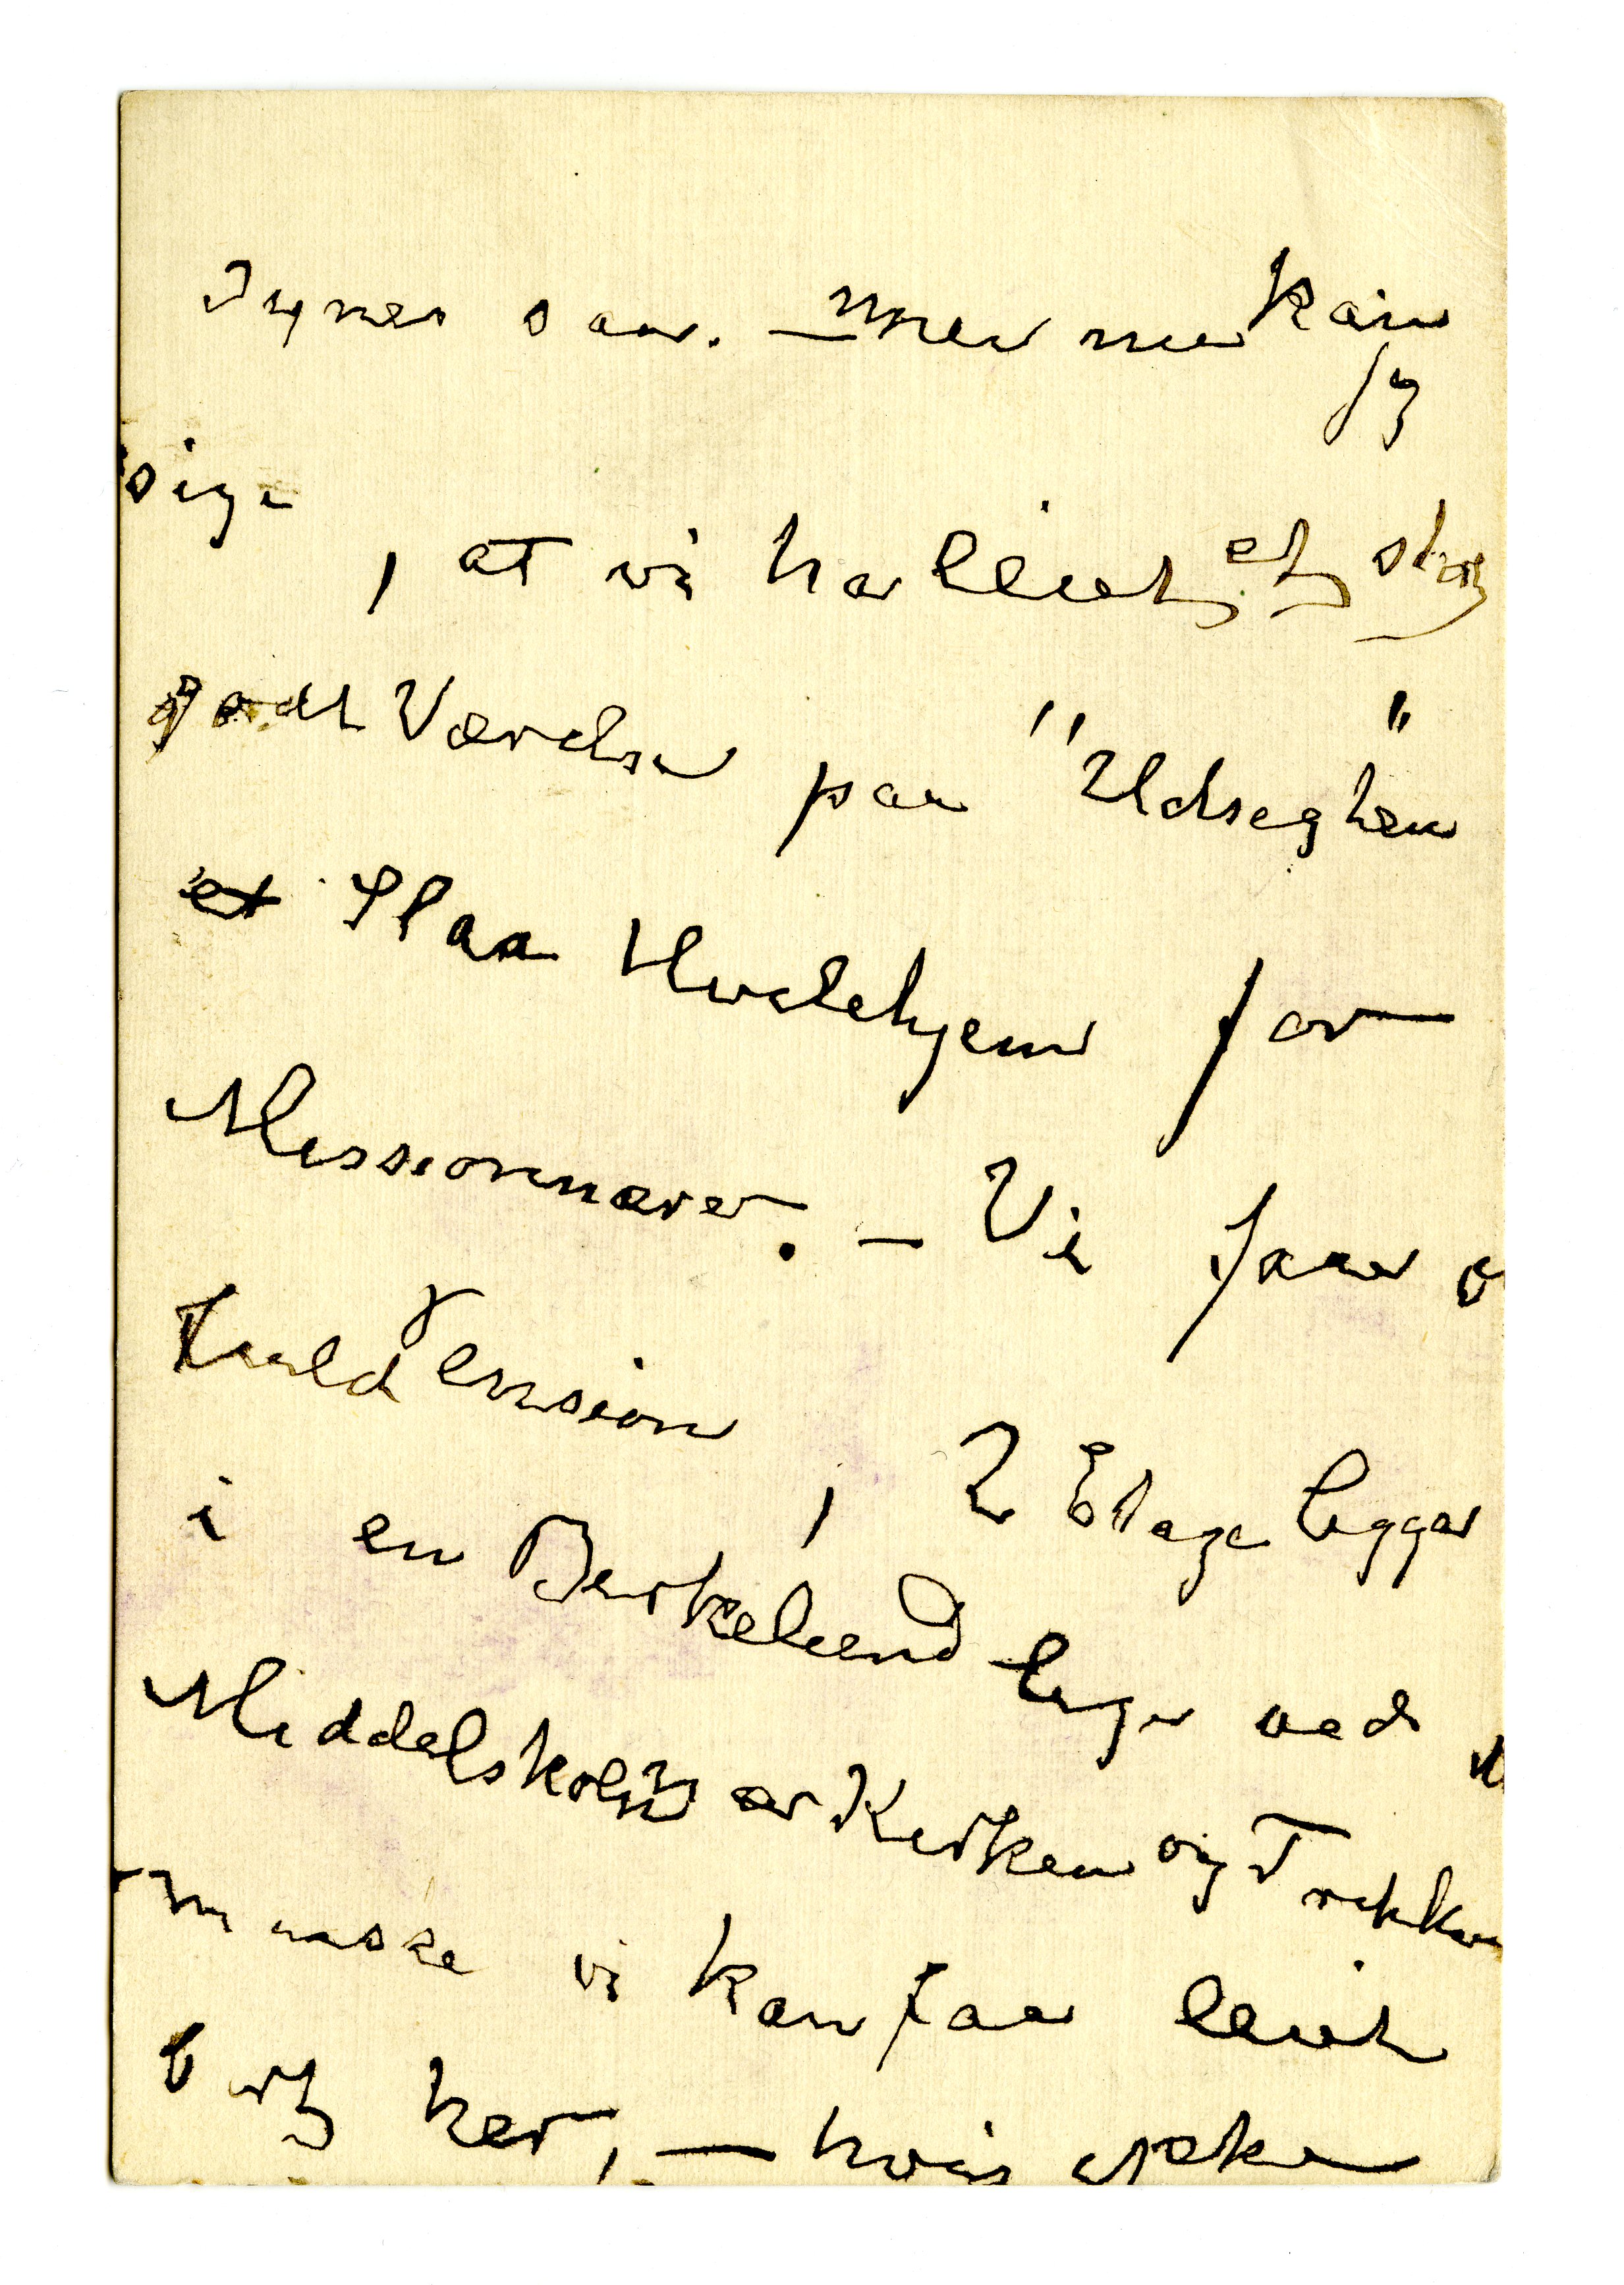 synes saa. – Men nu kan
jeg
sige, at vi har leiet et stort
godt Værelse paa "Udsigten"
et Slaa Hvilehjem for
Missionnærer. – Vi faar
fuld Pension, 2 Etage ligger
i en Birkelund lige ved
Middelskolen er Kirken og Trikken
maaske vi kan faa leiet
bort her, – hvis ikke